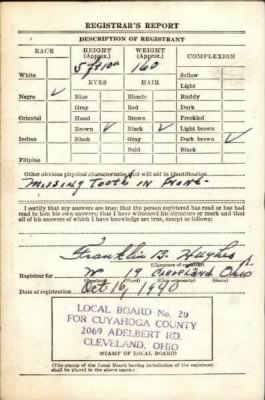 REGISTRAR'S REPORT
DESCRIPTION OF REGISTRANT
RACE HEIGHT (Approx.) WEIGHT (Approx.) COMPLEXION
5 ft 10 in 160
White Sallow
EYES HAIR Light
Negro ✓ Blue Blonde Ruddy
Gray Red Dark
Oriental Hazel Brown Freckled
Brown ✓ Black ✓ Light brown
Indian Black Gray Dark brown ✓
Bald Black
Filipino
Other obvious physical characteristics that will aid in identification
Missing Tooth in Front
I certify that my answers are true; that the person registered has read or has
had read to him his own answers; that I have witnessed his signature or mark and that
all of his answers of which I have knowledge are true, except as follows:
Franklin B. Hughes
(Signature of registrar)
Registrar for W 19 Cleveland Ohio
(Precinct) (Ward) (City or county) (State)
Date of registration Oct. 16, 1940
LOCAL BOARD No. 20
FOR CUYAHOGA COUNTY
2069 ADELBERT RD.
CLEVELAND, OHIO
(STAMP OF LOCAL BOARD)
(The stamp of the Local Board having jurisdiction of the registrant
shall be placed in the above space.)